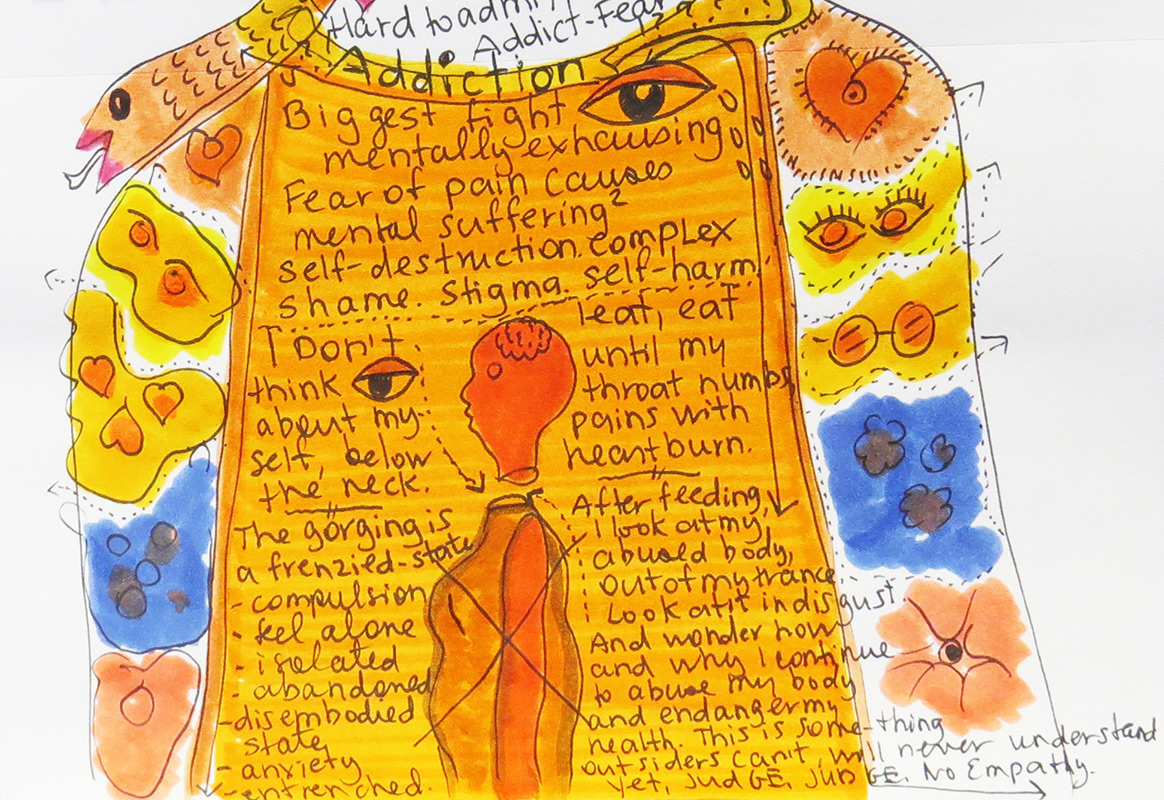 Hard to admit
Addict-Fear
Addiction
Biggest fight
mentally exhausing
Fear of pain causes
mental suffering²
self-destruction. complex
shame. Stigma. self-harm.
I Don't
think
about my
self, below
the neck.
I eat, eat
until my
throat numbs,
pains with
heartburn.
The gorging is
a frenzied-state
- compulsion
- feel alone
- isolated
- abandoned
- disembodied
state,
- anxiety
- entrenched.
After feeding,
I look at my
abused body,
out of my trance
Look at it in disgust.
And wonder how
and why I continue
to abuse my body
and endanger my
health. This is some-thing
outsiders can't, will never understand
yet, judGE, JUDGE. No Empathy.